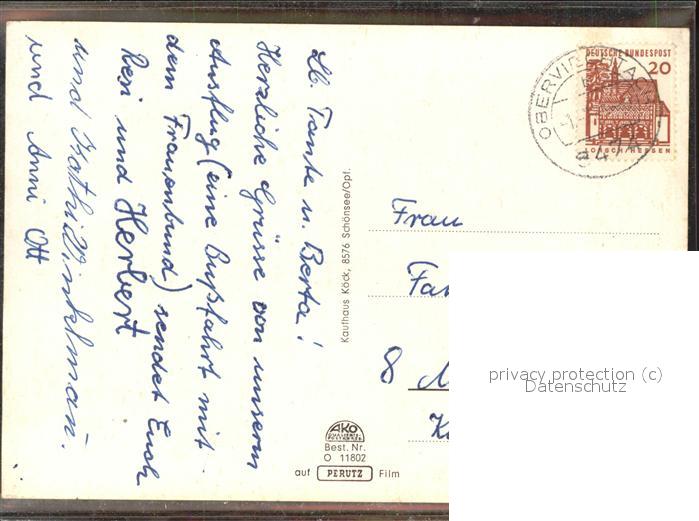 Lb. Tante u. Berta!
Herzliche Grüsse von unserem
Ausflug (eine Bußfahrt mit
dem Frauenbund) sendet Euch
Resi und Herbert
und Kathi Winkelman.
und Anni Ott
Kaufhaus Köck, 8576 Schönsee/Opf.
DEUTSCHE BUNDESPOST
20
LORSCH/HESSEN
OBERVIECHTACH
8474
Frau
8
privacy protection (c)
Datenschutz
AKO
Best. Nr.
O 11802
auf PERUTZ Film